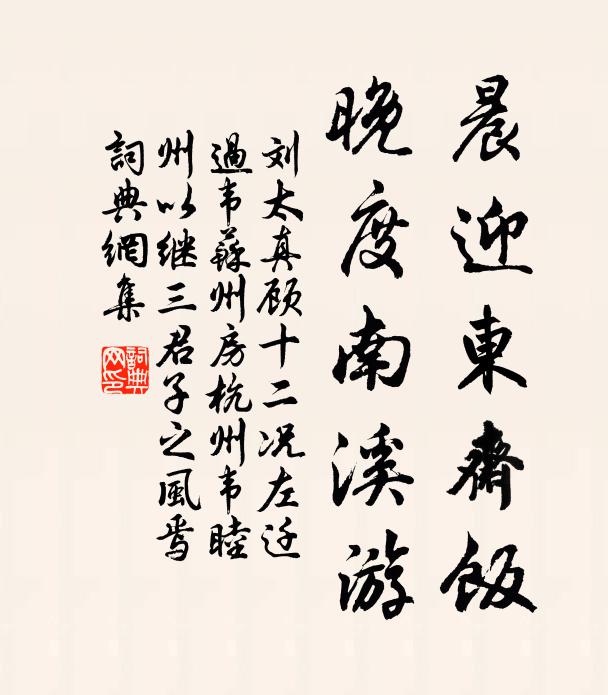 晨迎東齋飯
晚度南溪游
刘太真顾十二况左迁
過韦蘇州房杭州韦睦
州以继三君子之風焉
詞典網集
詞典
网印